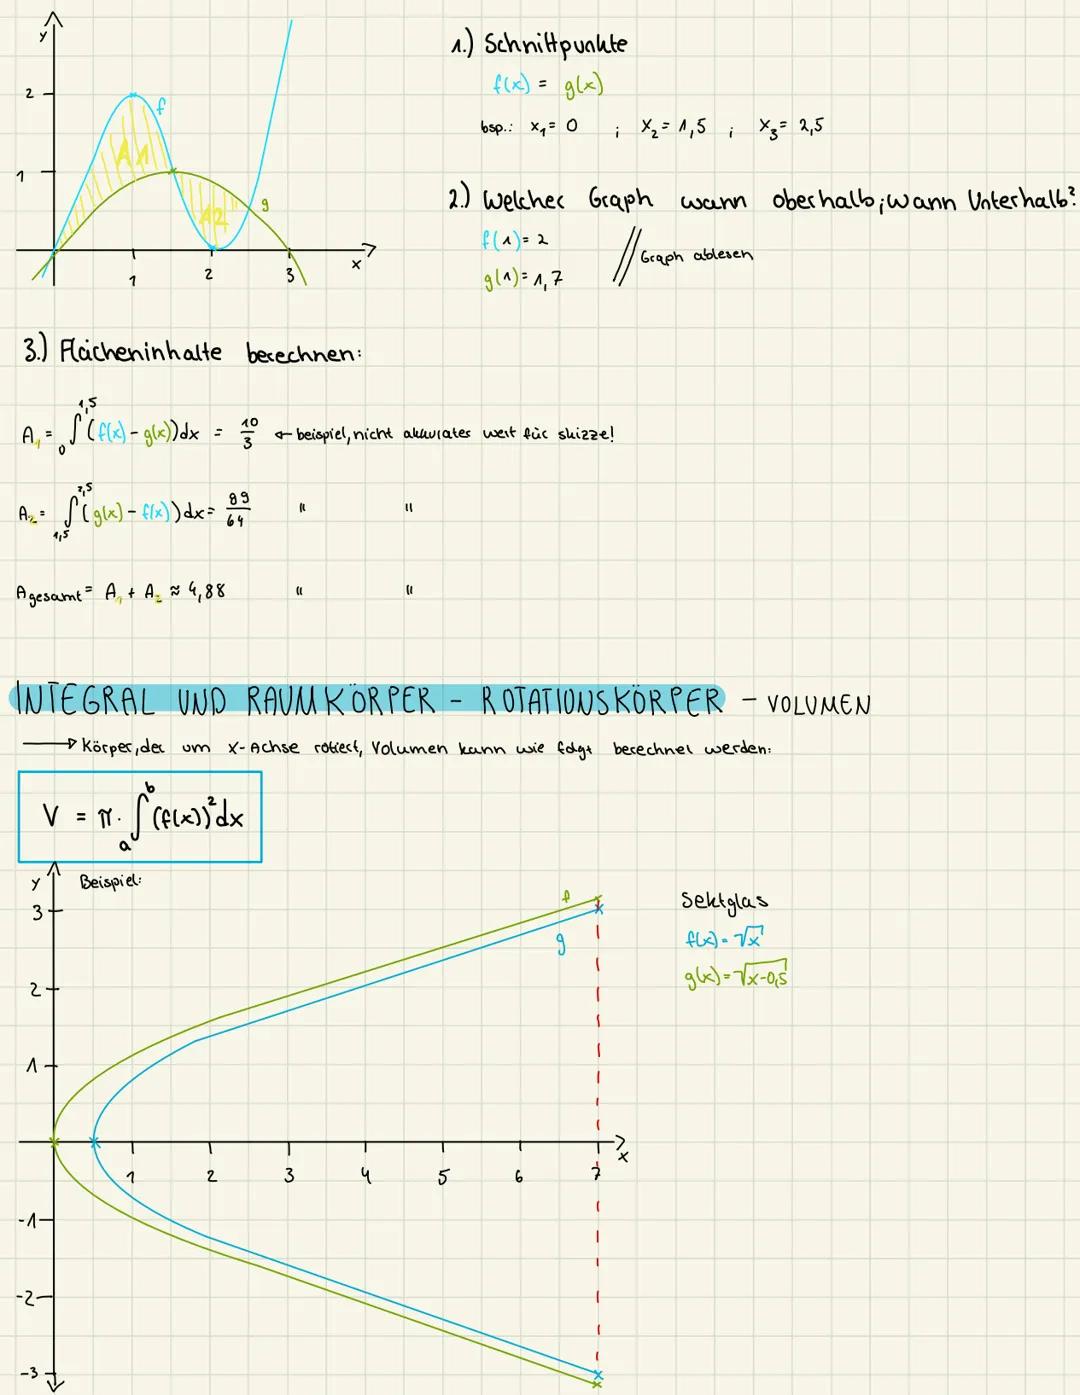 y
2
f
A1
1
A2
g
1
2
3
x
1.) Schnittpunkte
f(x) = g(x)
bsp.: x₁ = 0 ; x₂ = 1,5 ; x₃ = 2,5
2.) Welcher Graph wann oberhalb; wann Unterhalb?
f(1) = 2
g(1) = 1,7
// Graph ablesen
3.) Flächeninhalte berechnen:
A₁ = ∫₀^1,5 (f(x) - g(x))dx = 10/3 ← beispiel, nicht akkurates wert für skizze!
A₂ = ∫1,5^2,5 (g(x) - f(x))dx = 89/64 " "
Agesamt = A₁ + A₂ ≈ 4,88 " "
INTEGRAL UND RAUMKÖRPER - ROTATIONSKÖRPER - VOLUMEN
→ Körper, der um x-Achse rotiert, Volumen kann wie folgt berechnet werden:
V = π · ∫ₐᵇ (f(x))² dx
y
Beispiel:
3
f
g
2
1
1
2
3
4
5
6
7
x
-1
-2
-3
Sektglas
f(x) = √x
g(x) = √x-0,5